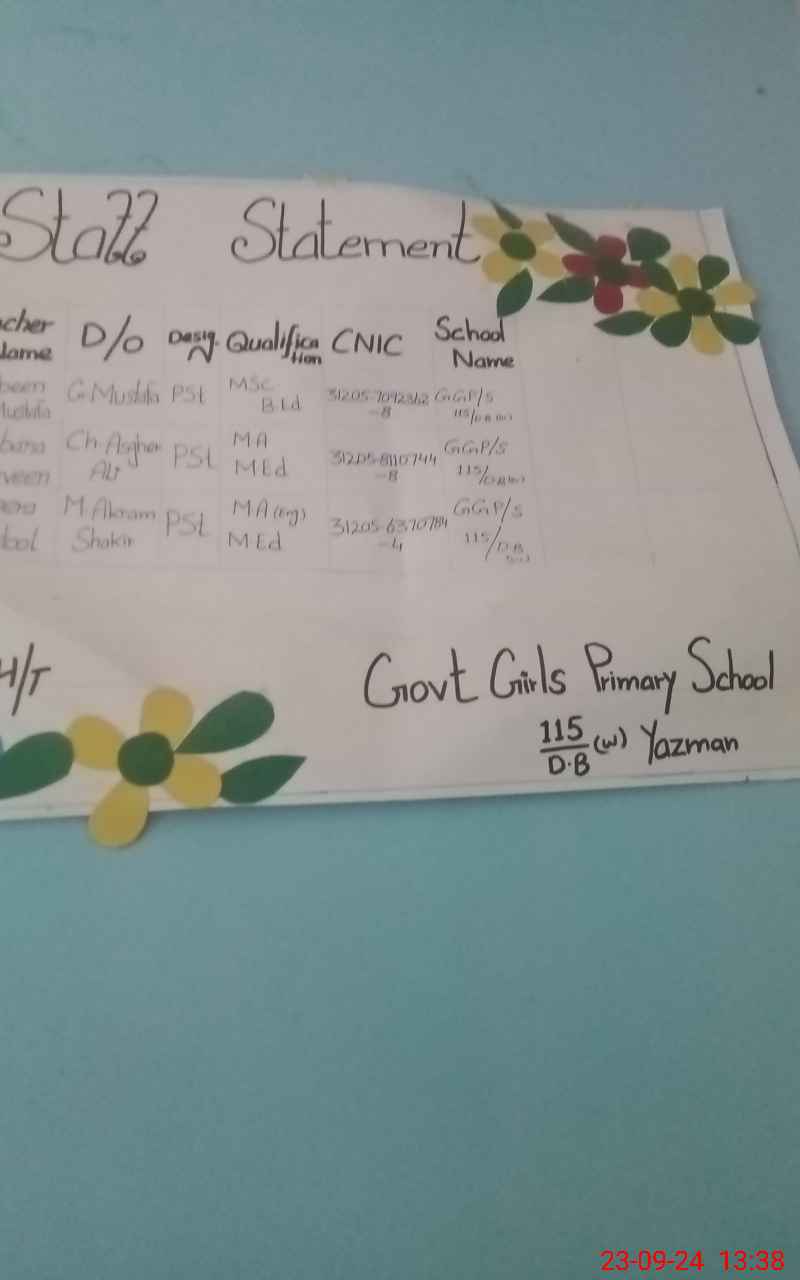 Staff Statement
cher Name D/o Desig. N Qualifica tion CNIC School Name
been Mustafa G. Mustafa PSt MSC B.Ed 31205-7092362-8 GGP/S 115/DB(W)
veen Ch. Asgher Ali PSt MA MEd 31205-8110744-8 GGP/S 115/DB(W)
M. Akram Shakir PSt MA (Eng) MEd 31205-6370784-4 GGP/S 115/DB
H/T
Govt Girls Primary School
115/D.B (W) Yazman
23-09-24 13:38